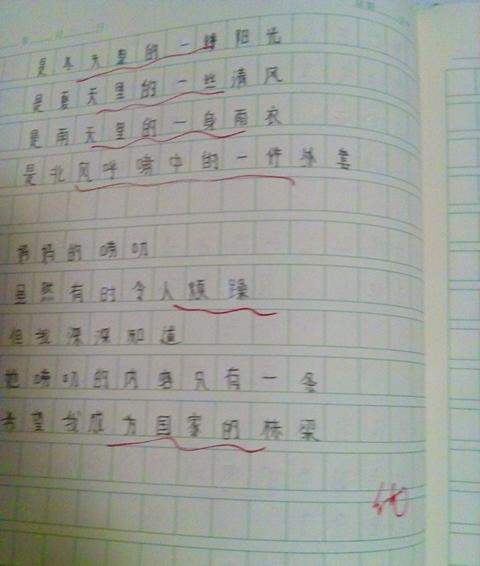 是冬天里的一缕阳光
是夏天里的一丝清风
是雨天里的一身雨衣
是北风呼啸中的一件外套
妈妈的唠叨
虽然有时令人烦躁
但我深深知道
她唠叨的内容只有一条
希望我成为国家的栋梁